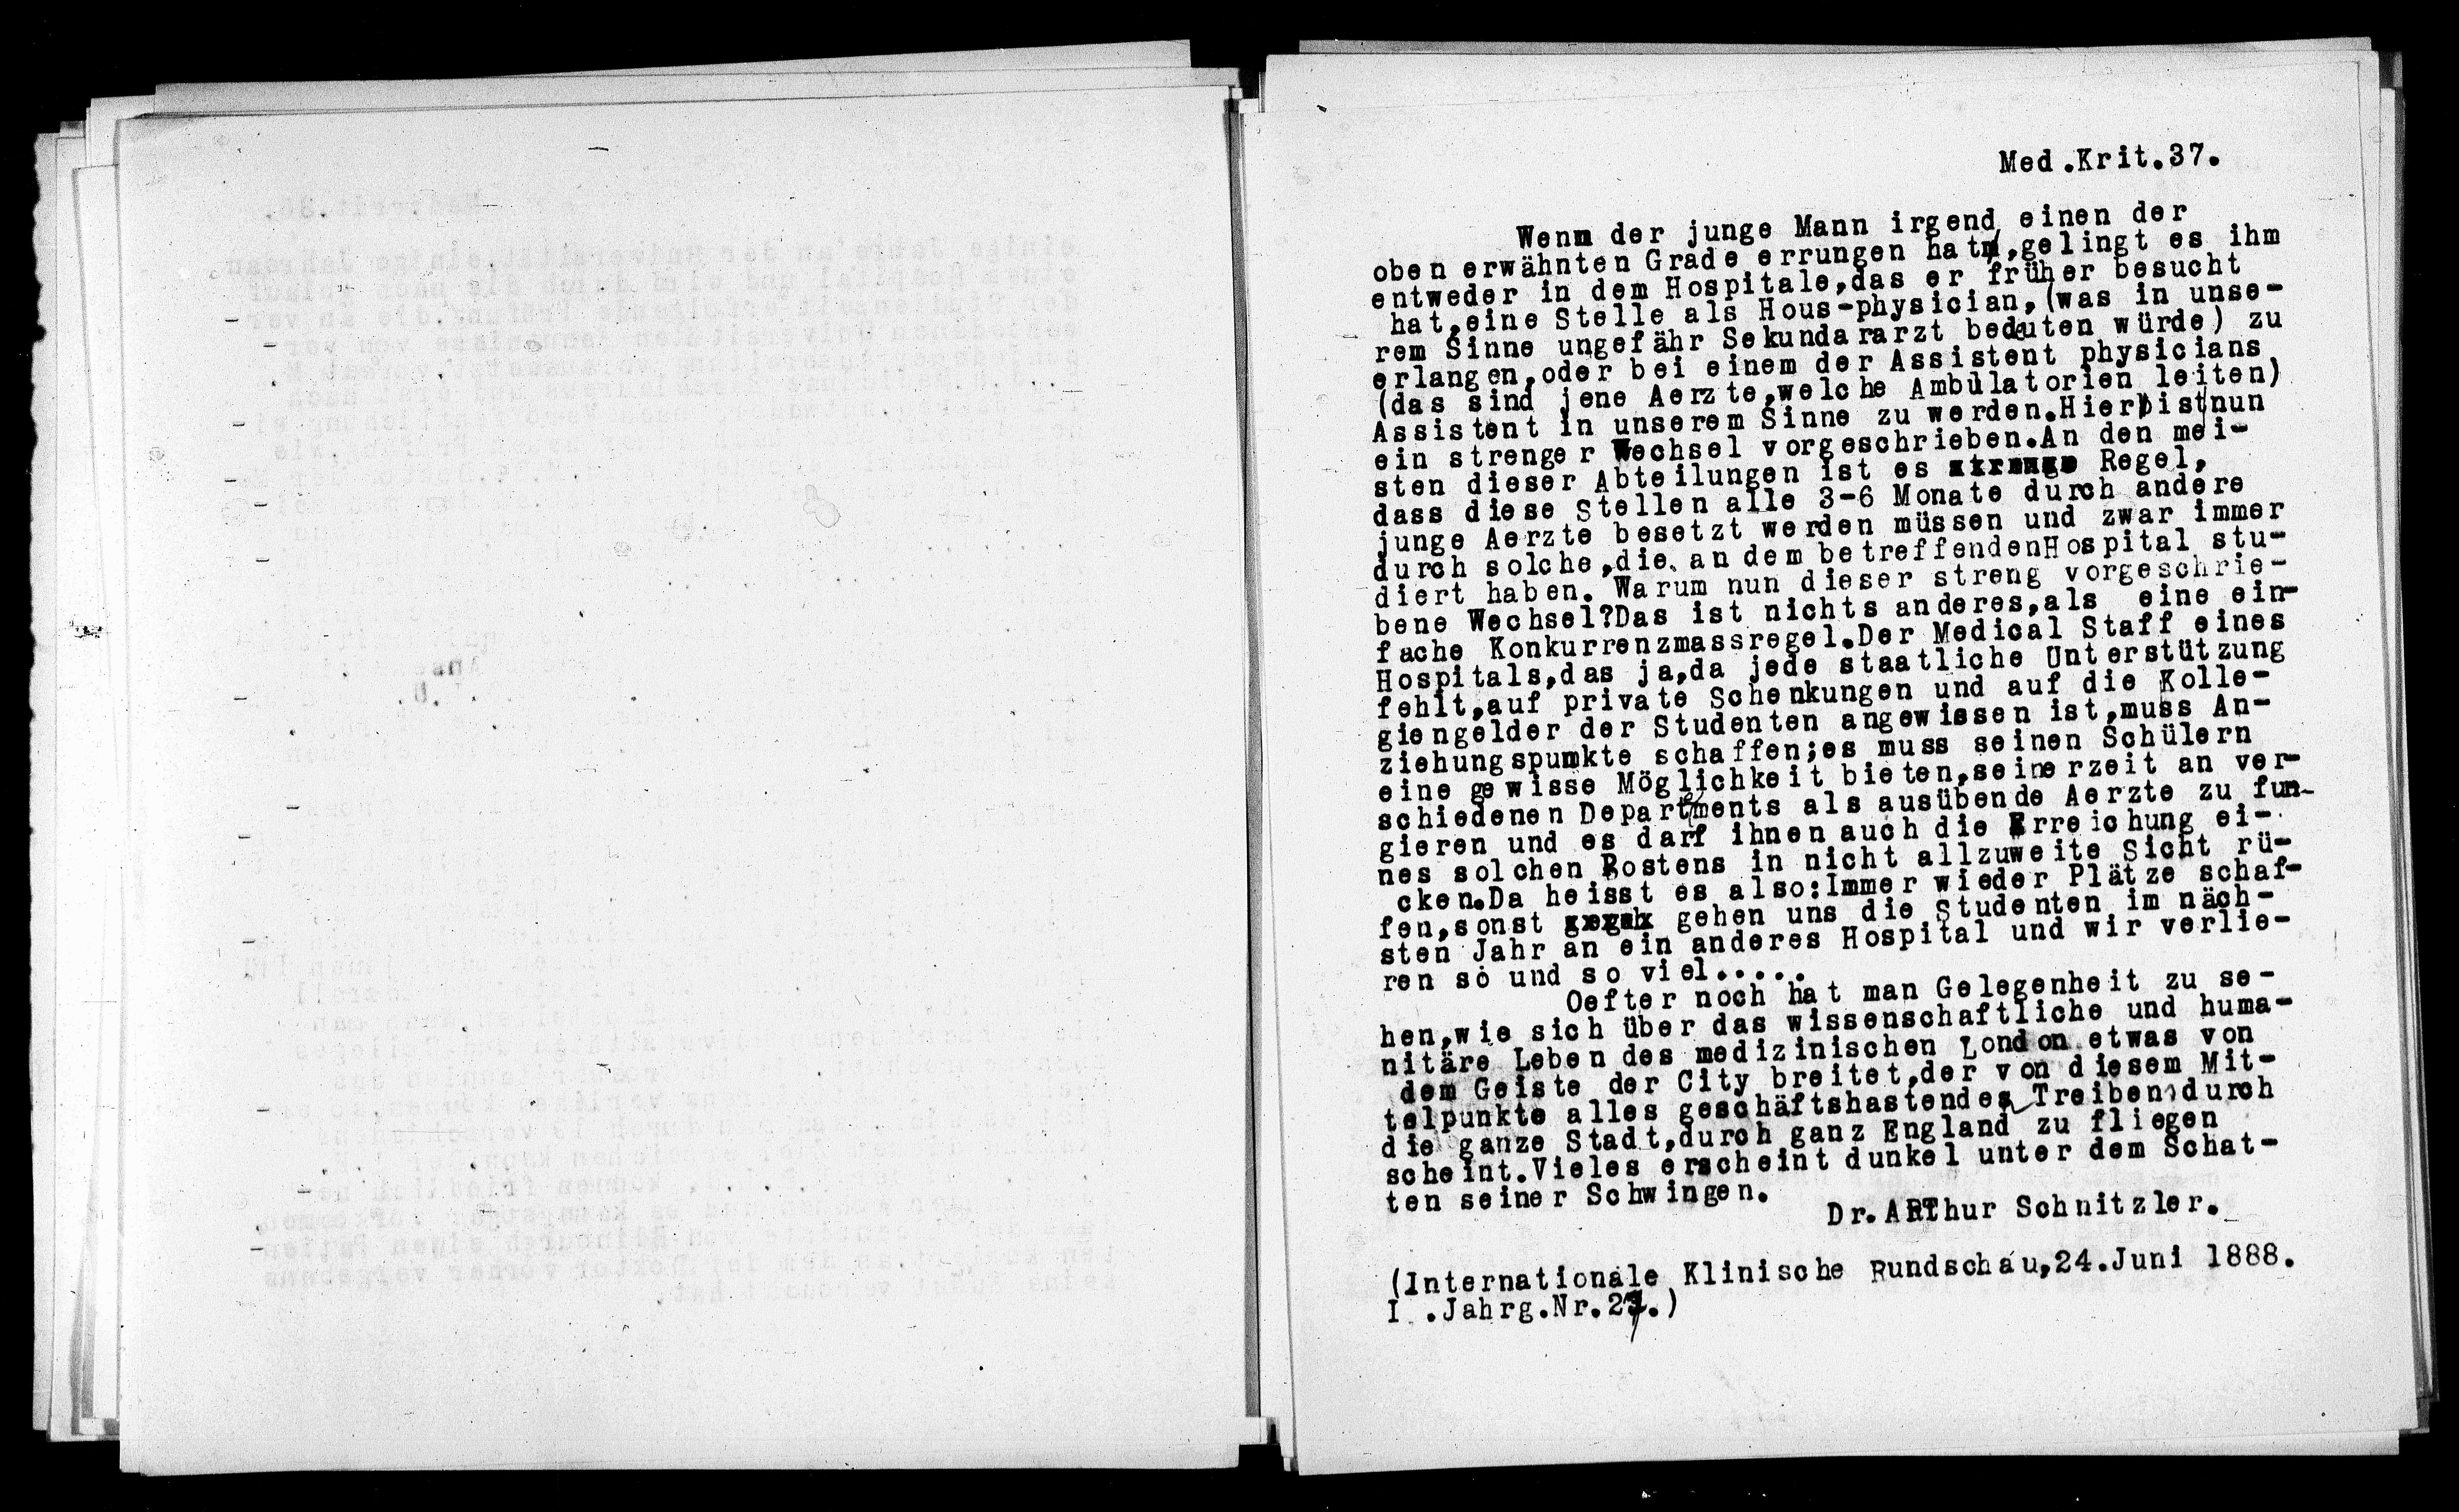 Med.Krit.37.
Wenn der junge Mann irgend einen der
oben erwähnten Grade errungen hat,gelingt es ihm
entweder in dem Hospitale,das er früher besucht
hat,eine Stelle als Hous-physician,(was in unse-
rem Sinne ungefähr Sekundararzt bedeuten würde) zu
erlangen,oder bei einem der Assistent physicians
(das sind jene Aerzte,welche Ambulatorien leiten)
Assistent in unserem Sinne zu werden.Hier ist nun
ein strenger Wechsel vorgeschrieben.An den mei-
sten dieser Abteilungen ist es Regel,
dass diese Stellen alle 3-6 Monate durch andere
junge Aerzte besetzt werden müssen und zwar immer
durch solche,die an dem betreffendenHospital stu-
diert haben. Warum nun dieser streng vorgeschrie-
bene Wechsel?Das ist nichts anderes,als eine ein-
fache Konkurrenzmassregel.Der Medical Staff eines
Hospitals,das ja,da jede staatliche Unterstützung
fehlt,auf private Schenkungen und auf die Kolle-
giengelder der Studenten angewissen ist,muss An-
ziehungspunkte schaffen;es muss seinen Schülern
eine gewisse Möglichkeit bieten,seinerzeit an ver-
schiedenen Departements als ausübende Aerzte zu fun-
gieren und es darf ihnen auch die Erreichung ei-
nes solchen Postens in nicht allzuweite Sicht rü-
cken.Da heisst es also:Immer wieder Plätze schaf-
fen,sonst gehen uns die Studenten im näch-
sten Jahr an ein anderes Hospital und wir verlie-
ren so und so viel.....
Oefter noch hat man Gelegenheit zu se-
hen,wie sich über das wissenschaftliche und huma-
nitäre Leben des medizinischen London etwas von
dem Geiste der City breitet,der von diesem Mit-
telpunkte alles geschäftshastendes Treiben durch
die ganze Stadt,durch ganz England zu fliegen
scheint.Vieles erscheint dunkel unter dem Schat-
ten seiner Schwingen.
Dr.ARThur Schnitzler.
(Internationale Klinische Rundschau,24.Juni 1888.
I .Jahrg.Nr.27.)